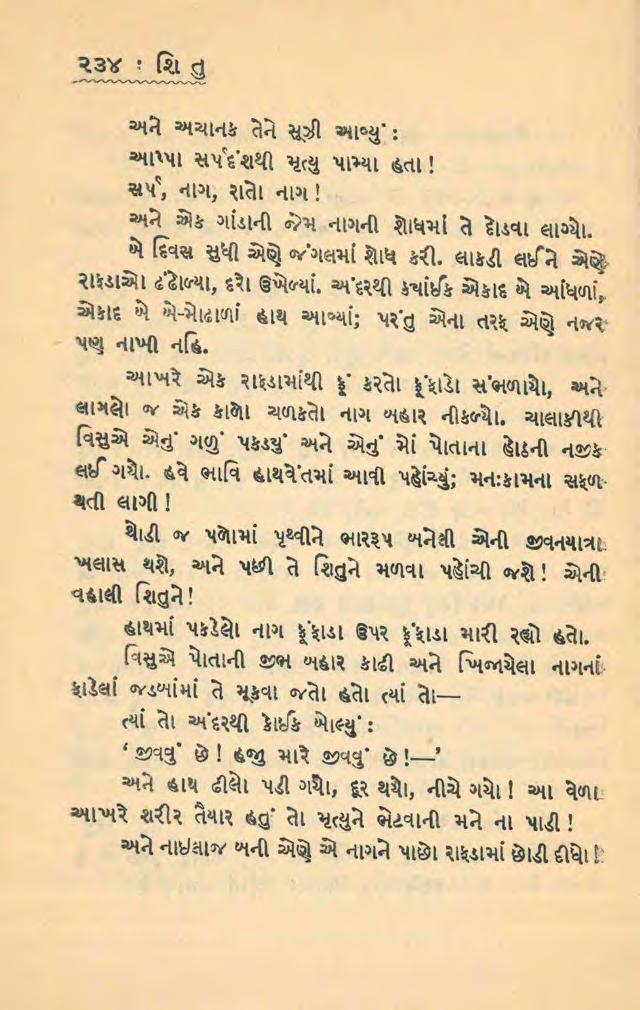 ૨૩૪ : શિ તુ
અને અચાનક તેને સૂઝી આવ્યું :
આપ્પા સર્પદંશથી મૃત્યુ પામ્યા હતા !
સર્પ, નાગ, રાતો નાગ !
અને એક ગાંડાની જેમ નાગની શોધમાં તે દોડવા લાગ્યો.
બે દિવસ સુધી એણે જંગલમાં શોધ કરી. લાકડી લઈને એણે
રાફડાઓ ઢંઢોળ્યા, દરો ઉખેળ્યાં. અંદરથી ક્યાંઈક એકાદ બે આંધળાં,
એકાદ બે બે-મોઢાળાં હાથ આવ્યાં; પરંતુ એના તરફ એણે નજર
પણ નાખી નહિ.
આખરે એક રાફડામાંથી ફૂં કરતો ફૂંફાડો સંભળાયો, અને
લાગલો જ એક કાળો ચળકતો નાગ બહાર નીકળ્યો. ચાલાકીથી
વિસુએ એનું ગળું પકડયું અને એનું મોં પોતાના હોઠની નજીક
લઈ ગયો. હવે ભાવિ હાથવેંતમાં આવી પહોંચ્યું; મનઃકામના સફળ
થતી લાગી !
થોડી જ પળોમાં પૃથ્વીને ભારરૂપ બનેલી એની જીવનયાત્રા
ખલાસ થશે, અને પછી તે શિતુને મળવા પહોંચી જશે ! એની
વહાલી શિતુને !
હાથમાં પકડેલો નાગ ફૂંફાડા ઉપર ફૂંફાડા મારી રહ્યો હતો.
વિસુએ પોતાની જીભ બહાર કાઢી અને ખિજાયેલા નાગનાં
ફાડેલાં જડબાંમાં તે મૂકવા જતો હતો ત્યાં તો—
ત્યાં તો અંદરથી કોઈક બોલ્યું :
‘ જીવવું છે ! હજુ મારે જીવવું છે !—’
અને હાથ ઢીલો પડી ગયો, દૂર થયો, નીચે ગયો ! આ વેળા
આખરે શરીર તૈયાર હતું તો મૃત્યુને ભેટવાની મને ના પાડી !
અને નાઇલાજ બની એણે એ નાગને પાછો રાફડામાં છોડી દીધો !